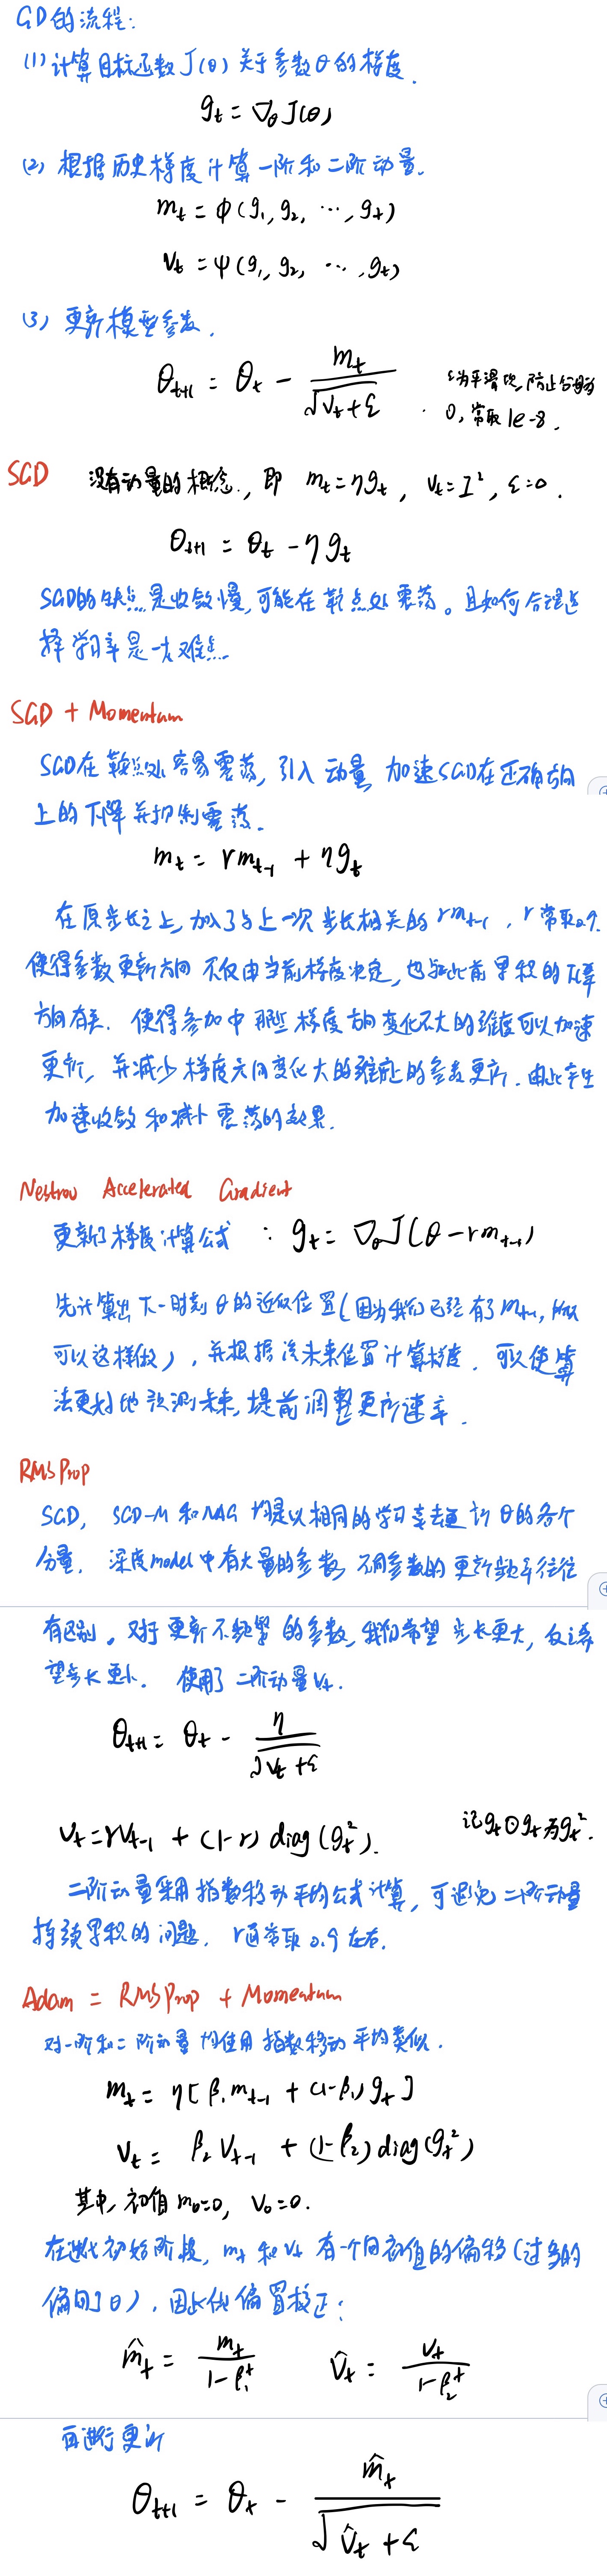 GD的流程:
(1) 计算目标函数J(θ) 关于参数θ的梯度.
g_t = ∇_θ J(θ)
(2) 根据历史梯度计算一阶和二阶动量.
m_t = φ(g_1, g_2, ..., g_t)
v_t = ψ(g_1, g_2, ..., g_t)
(3) 更新模型参数.
θ_{t+1} = θ_t - m_t / √(v_t + ε)
ε为平滑项,防止分母为
0,常取1e-8.
SGD 没有动量的概念., 即 m_t = ηg_t, v_t = I², ε=0.
θ_{t+1} = θ_t - ηg_t
SGD的缺点是收敛慢,可能在鞍点处震荡。且如何合理选
择学习率是一大难点.
SGD + Momentum
SGD在鞍点处容易震荡, 引入动量 加速SGD在正确方向
上的下降并抑制震荡.
m_t = γm_{t-1} + ηg_t
在原步长之上,加入了与上一次步长相关的γm_{t-1}, γ常取0.9.
使得参数更新方向不仅由当前梯度决定,也与此前累积的下降
方向有关. 使得参加中那些梯度方向变化不大的维度可以加速
更新, 并减少梯度方向变化大的维度的参数更新. 由此产生
加速收敛和减小震荡的效果.
Nestrov Accelerated Gradient
更新了梯度计算公式: g_t = ∇_θ J(θ - γm_{t-1})
先计算出下一时刻θ的近似位置(因为我们已经有了m_{t-1}, 所以
可以这样做), 并根据该未来位置计算梯度. 可以使算
法更好地预测未来,提前调整更新速率.
RMSProp
SGD, SGD-M 和NAG 均是以相同的学习率去更新θ的各个
分量. 深度model中有大量的参数,不同参数的更新频率往往
有区别。对于更新不频繁的参数,我们希望步长更大,反之希
望步长更小. 使用了二阶动量v_t.
θ_{t+1} = θ_t - η / √(v_t + ε)
v_t = γv_{t-1} + (1-γ) diag(g_t²). 记g_t⊙g_t为g_t².
二阶动量采用指数移动平均公式计算, 可避免二阶动量
持续累积的问题. γ通常取0.9左右.
Adam = RMSProp + Momentum
对一阶和二阶动量均使用指数移动平均类似.
m_t = η[β_1 m_{t-1} + (1-β_1) g_t]
v_t = β_2 v_{t-1} + (1-β_2) diag(g_t²)
其中,初值m_0=0, v_0=0.
在迭代初始阶段, m_t和v_t有一个向初值的偏移(过多的
偏向了0). 因此做偏置校正:
m̂_t = m_t / (1-β_1^t) v̂_t = v_t / (1-β_2^t)
再进行更新
θ_{t+1} = θ_t - m̂_t / √(v̂_t + ε)